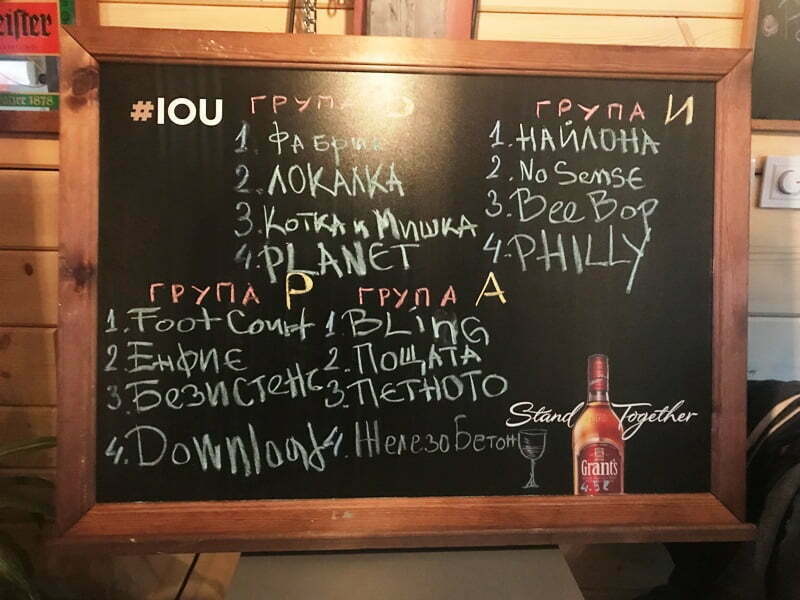 eister
SINCE 1878
#IOU
ГРУПА О
1. ФАБРИК
2. ЛОКАЛКА
3. КОТКА и МИШКА
4. PLANET
ГРУПА И
1. НАЙЛОНА
2. No SENSE
3. Bee Bop
4. PHILLY
ГРУПА Р
1. Foot Court
2. ЕНФИЕ
3. БЕЗИСТЕНС
4. Download
ГРУПА А
1. BLiNG
2. ПОЩАТА
3. ПЕТНОТО
4. ЖЕЛЕЗО БЕТОН
Stand Together
Grant's